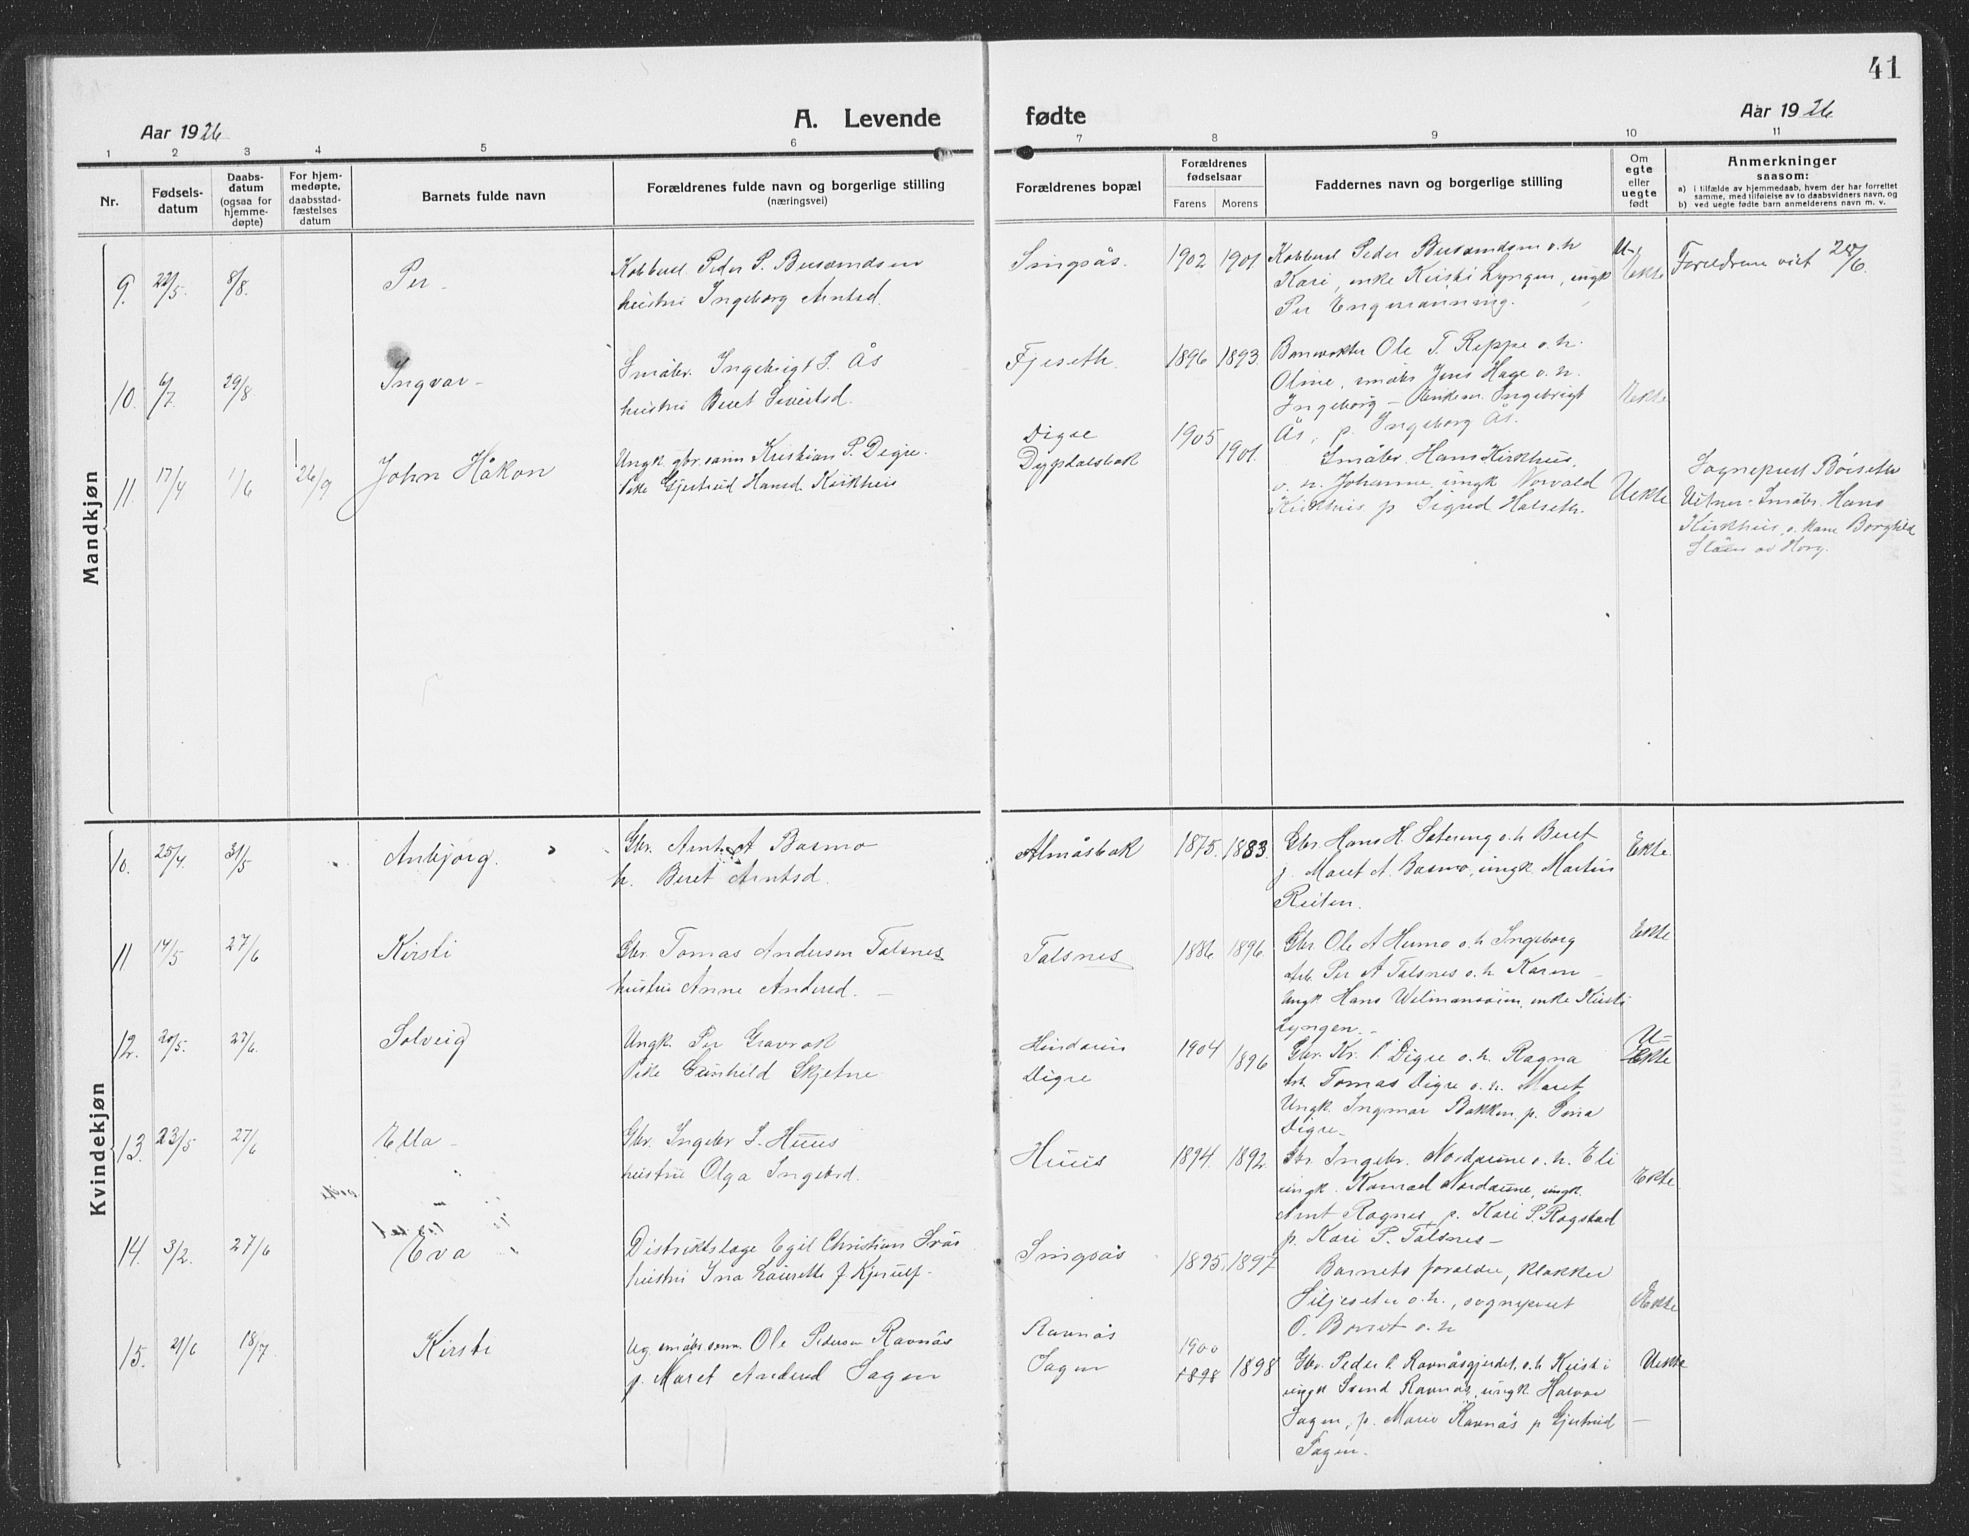 41
Aar 1926
A. Levende fødte
Aar 1926
1 2 3 4 5 6 7 8 9 10 11
Nr.
Fødsels-
datum
Daabs-
datum
(ogsaa for
hjemme-
døpte)
For hjem-
medøpte,
daabsstad-
fæstelses
datum
Barnets fulde navn
Forældrenes fulde navn og borgerlige stilling
(næringsvei)
Forældrenes bopæl
Forældrenes
fødselsaar
Farens Morens
Faddernes navn og borgerlige stilling
Om
egte
eller
uegte
født
Anmerkninger
saasom:
a) i tilfælde av hjemmedaab, hvem der har forrettet
samme, med tilføielse av to daabsvidners navn, og
b) ved uegte fødte barn anmelderens navn m. v.
Mandkjøn
9. 22/5. 8/8. Per -
Peder P.
hustru Ingeborg Arntsd.
Singsås. 1902 1901
Peder o. h
Kari, enke Kirsti Lyngen, ungk
Per
Uekte
Forældrene viet 20/6.
10. 6/7. 29/8 Ingvar -
Småbr. Ingebrigt S. Ås
hustru Beret Sivertsd.
Fjeseth 1896 1893.
Banevokter Ole T. Reppe o. h.
Oline, småbr Jens Hage o. h.
Ingeborg - Ingebrigt
Ås, p. Ingeborg Ås.
Uekte
11. 17/4 1/6 26/9 John Håkon
Ungk. gbr.sønn Kristian P. Digre.
Pike Gjertrud Hansd. Kirkhus
Digre
Dypdalsbak
1905 1901.
Småbr. Hans Kirkhus.
o. h. Johanne, ungk Norvald
Kirkhus p Sigrid Halseth.
Uekte
Sogneprest
Vitner: Småbr. Hans
Kirkhus, o. Borghild
av Horg.
Kvindekjøn
10. 25/4. 31/5 Anbjørg.
Gbr. Arnt A Basmo
h. Beret Arntsd.
Almåsbak 1875. 1883.
Gbr Hans H. o. h Beret
p. Maret A. Basmo, ungk. Martin
Reiten.
Ekte.
11 14/5 27/6 Kirsti
Gbr. Tomas Andersen Talsnes
hustru Anne Andersd. -
Talsnes 1886 1896.
Gbr Ole A o. h Ingeborg
Arb. Per A Talsnes o. h Karen -
Ungk Hans enke Kirsti
Lyngen -
Ekte
12. 20/5. 27/6. Solveig
Ungk. Per Gravråk
Pike Gunhild Skjetne
Digre
1904 1896
Gbr. Kr. P. Digre o. h. Ragna
Tomas Digre o. h. Maret
Ungk. Ingmar Bakken, p.
Digre -
U-
Ekte
13. 23/5 27/6 Ella -
Gbr. Ingebr S. Huus
hustru Olga Ingebsd.
Huus 1894. 1892.
Gbr. Ingebr. Nordaune o. h. Eli
ungk. Konrad Nordaune, ungk.
Arnt Rognes p. Kari P. Rogstad
p. Kari P. Talsnes -
Ekte
14. 3/2. 27/6 Eva
Distriktslæge Egil Christian
hustru Ina Laurette f Kjerulf.
Singsås 1895. 1897
Barnets foreldre, klokker
Siljeseter o. h., sogneprest
o. h
Ekte
15. 21/6 18/7 Kirsti
Ug. småbr. sønn. Ole Pedersen Ravnås
p. Maret Andersd Sagen
Ravnås
Sagen
1900
1898 1898
Gbr. Peder P. Ravnåsgjerdet, o. h Kirsti
ungk Svend Ravnås, ungk Halvor
Sagen, p. Marie Ravnås p Gjertrud
Sagen.
Uekte
-